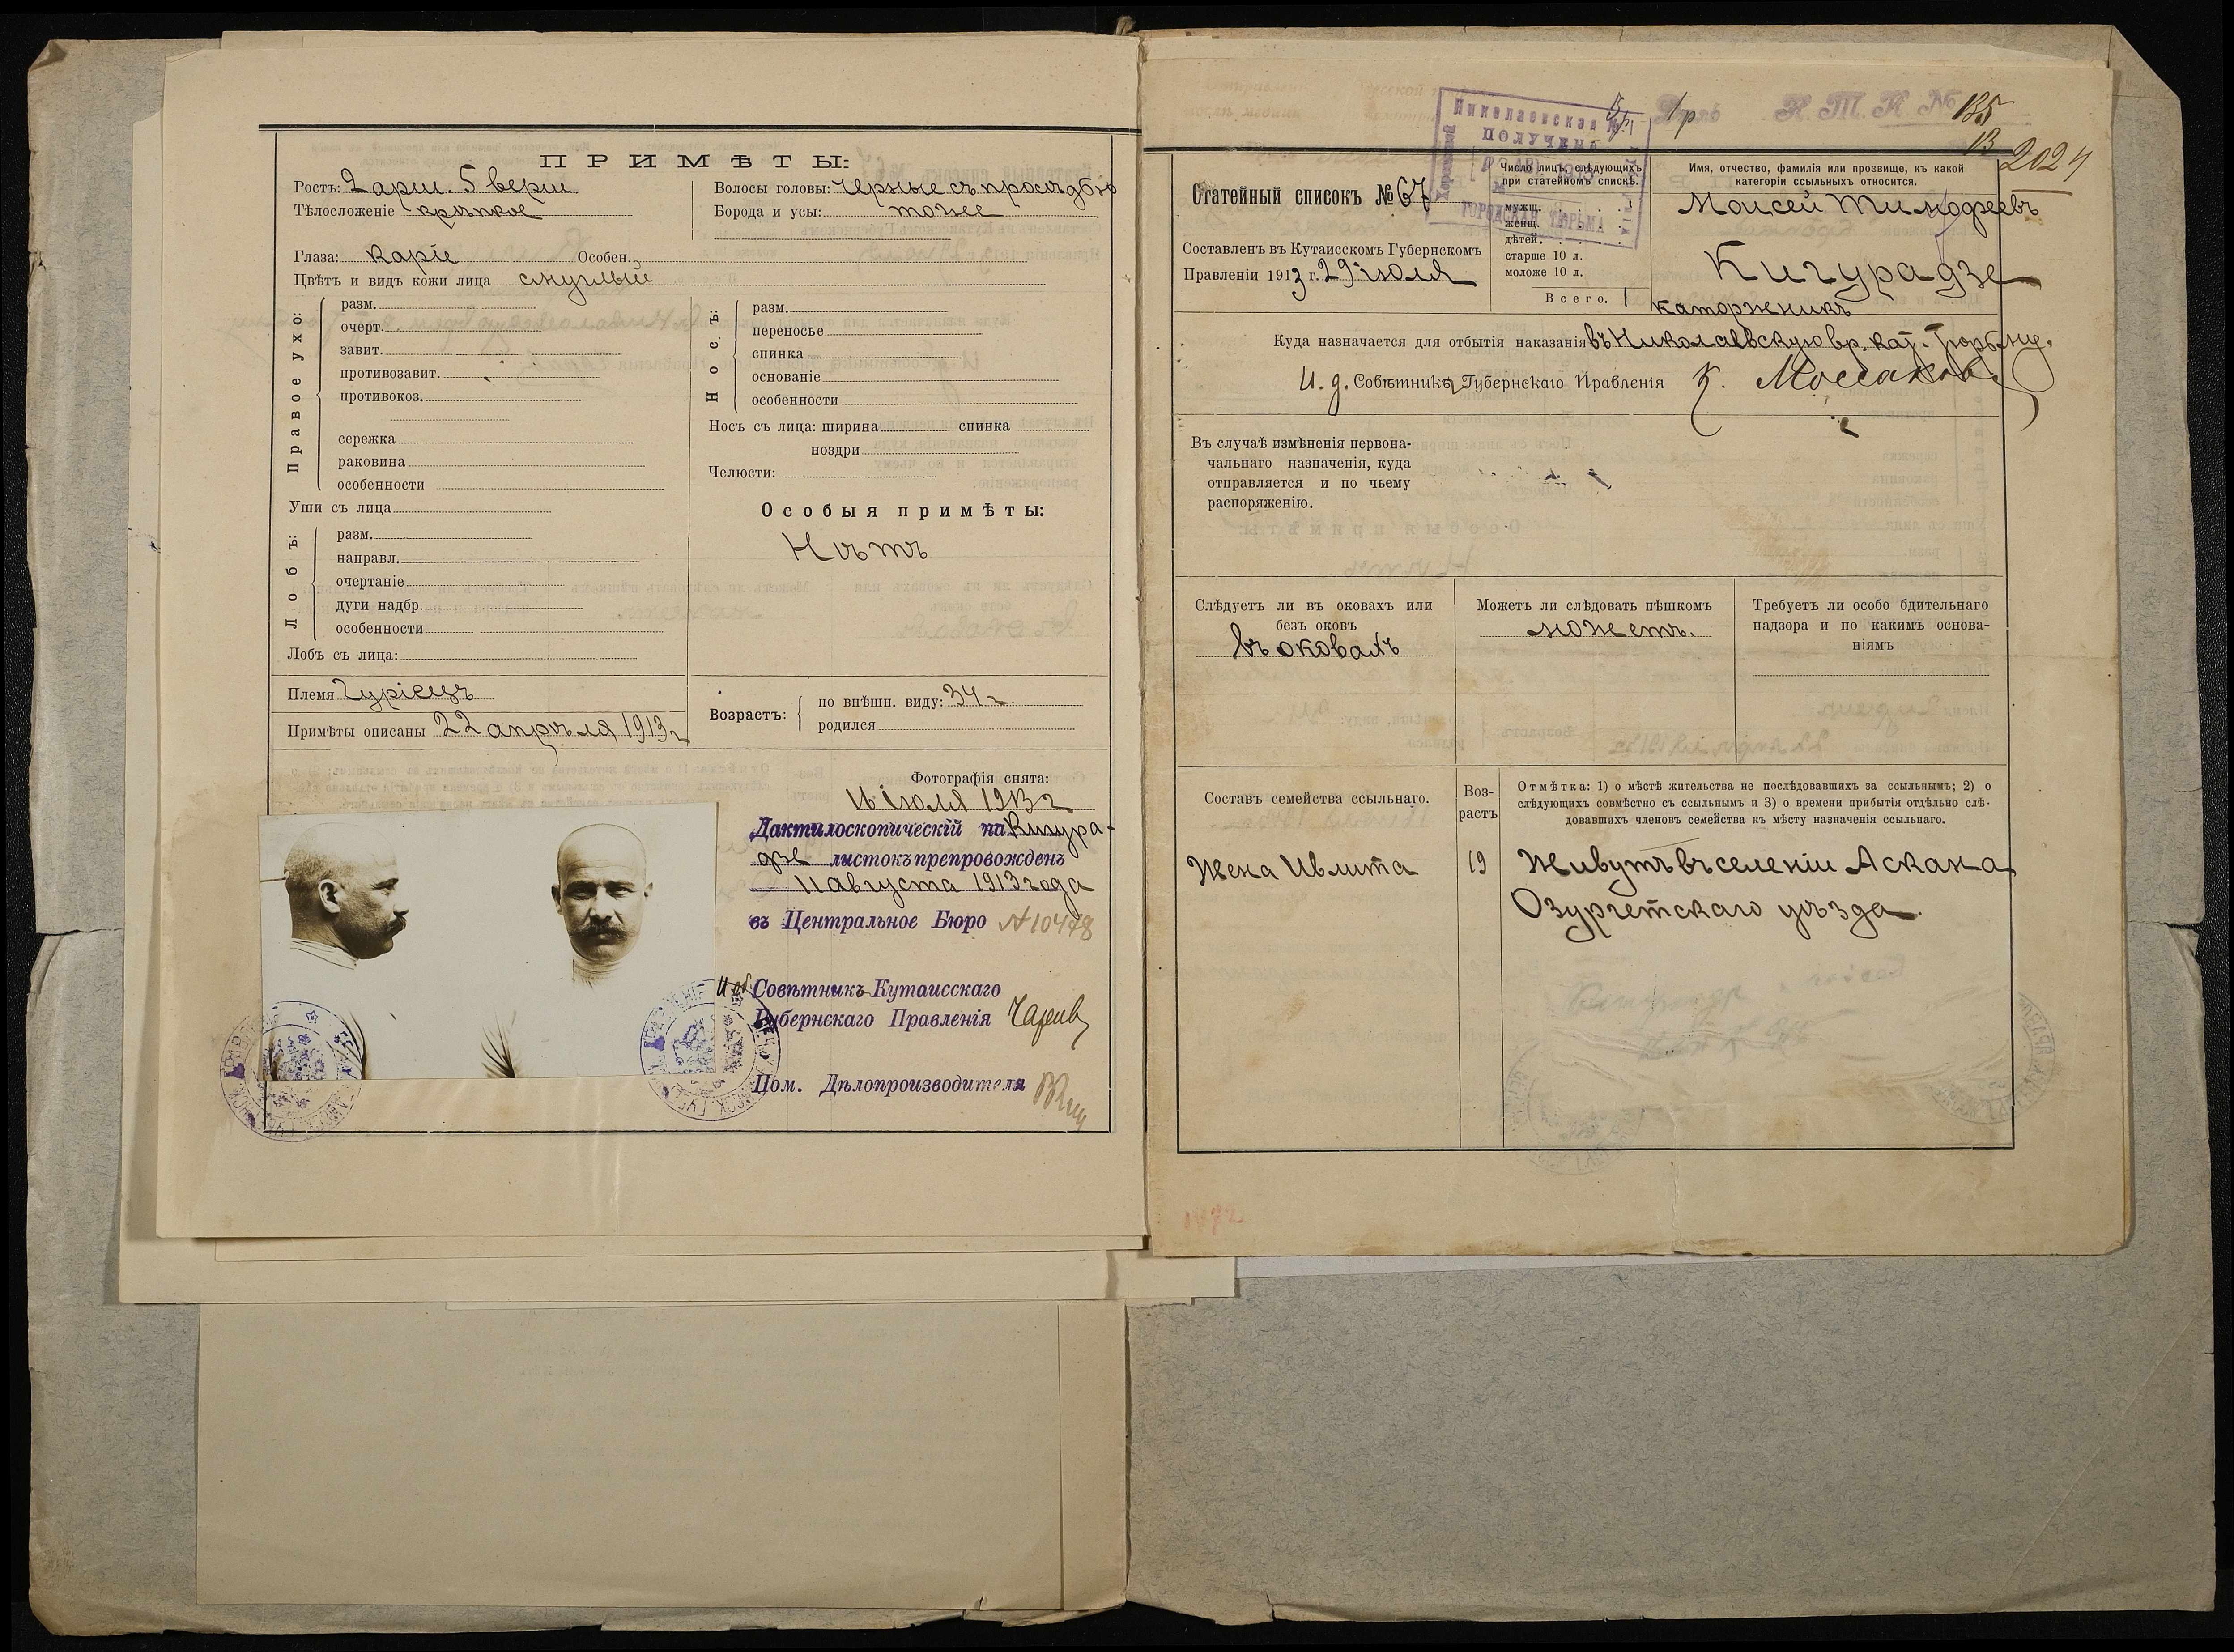 ПРИМѢТЫ:
Ростъ: 2 арш. 5 верш
Тѣлосложеніе крѣпкое
Волосы головы: черные съ просѣдью
Борода и усы: тоже
Глаза: Каріе Особен.
Цвѣтъ и видъ кожи лица смуглый
Правое ухо:
разм.
очерт.
завит.
противозавит.
противокоз.
сережка
раковина
особенности
Уши съ лица
Лобъ:
разм.
направл.
очертаніе
дуги надбр.
особенности
Лобъ съ лица:
Носъ:
разм.
переносье
спинка
основаніе
особенности
Носъ съ лица: ширина спинка
ноздри
Челюсти:
Особыя примѣты:
Нѣтъ
Племя Гуріецъ
Примѣты описаны 22 апрѣля 1913 г
Возрастъ:
по внѣшн. виду: 34 г.
родился
Фотографія снята:
16 іюля 1913 г
Дактилоскопическій на Кигура-
дзе листокъ препровожденъ
11 августа 1913 года
въ Центральное Бюро № 10478
Совѣтникъ Кутаисскаго
Губернскаго Правленія
Пом. Дѣлопроизводителя
К. Т. К. №
135
13
2024
Николаевская
ПОЛУЧЕНО
ГОРОДСКАЯ ТЮРЬМА
Статейный списокъ № 67
Составленъ въ Кутаисскомъ Губернскомъ
Правленіи 1913 г. 29 іюля
Число лицъ, слѣдующихъ
при статейномъ спискѣ.
мужщ. 1
женщ.
дѣтей.
старше 10 л.
моложе 10 л.
Всего. 1
Имя, отчество, фамилія или прозвище, къ какой
категоріи ссыльныхъ относится.
Моисей Тимофеевъ
Кигурадзе
каторжникъ
Куда назначается для отбытія наказанія въ Николаевскую вр. кат. тюрьму.
И. д. Совѣтника Губернскаго Правленія К.
Въ случаѣ измѣненія первона-
чальнаго назначенія, куда
отправляется и по чьему
распоряженію.
Слѣдуетъ ли въ оковахъ или
безъ оковъ
въ оковахъ
Можетъ ли слѣдовать пѣшкомъ
можетъ.
Требуетъ ли особо бдительнаго
надзора и по какимъ основа-
ніямъ
Составъ семейства ссыльнаго.
Воз-
растъ
Отмѣтка: 1) о мѣстѣ жительства не послѣдовавшихъ за ссыльнымъ; 2) о
слѣдующихъ совмѣстно съ ссыльнымъ и 3) о времени прибытія отдѣльно слѣ-
довавшихъ членовъ семейства къ мѣсту назначенія ссыльнаго.
Жена Ивлита 19 Живутъ въ селеніи Аскана
Озургетскаго уѣзда.